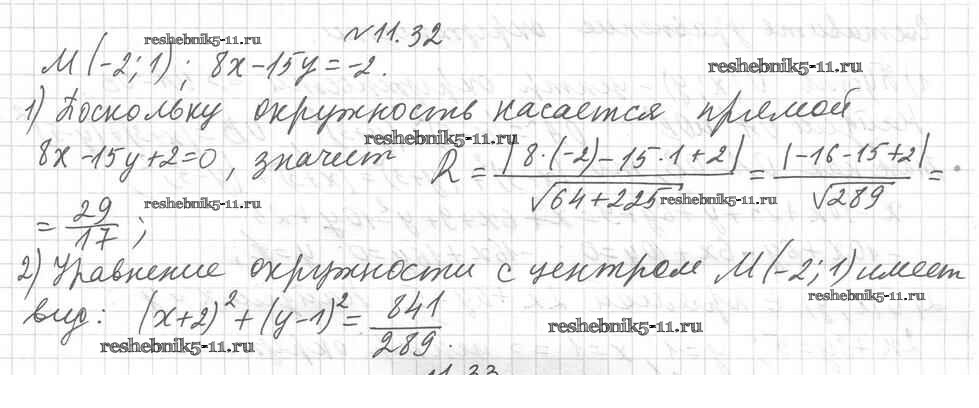 №11.32
reshebnik5-11.ru
M(-2;1); 8x-15y=-2.
reshebnik5-11.ru
1) Поскольку окружность касается прямой
reshebnik5-11.ru
8x-15y+2=0, значит R = |8·(-2)-15·1+2| / √64+225 = |-16-15+2| / √289 =
reshebnik5-11.ru
reshebnik5-11.ru
= 29/17;
2) Уравнение окружности с центром M(-2;1) имеет
reshebnik5-11.ru
вид: (x+2)² + (y-1)² = 841/289.
reshebnik5-11.ru
reshebnik5-11.ru
11.33